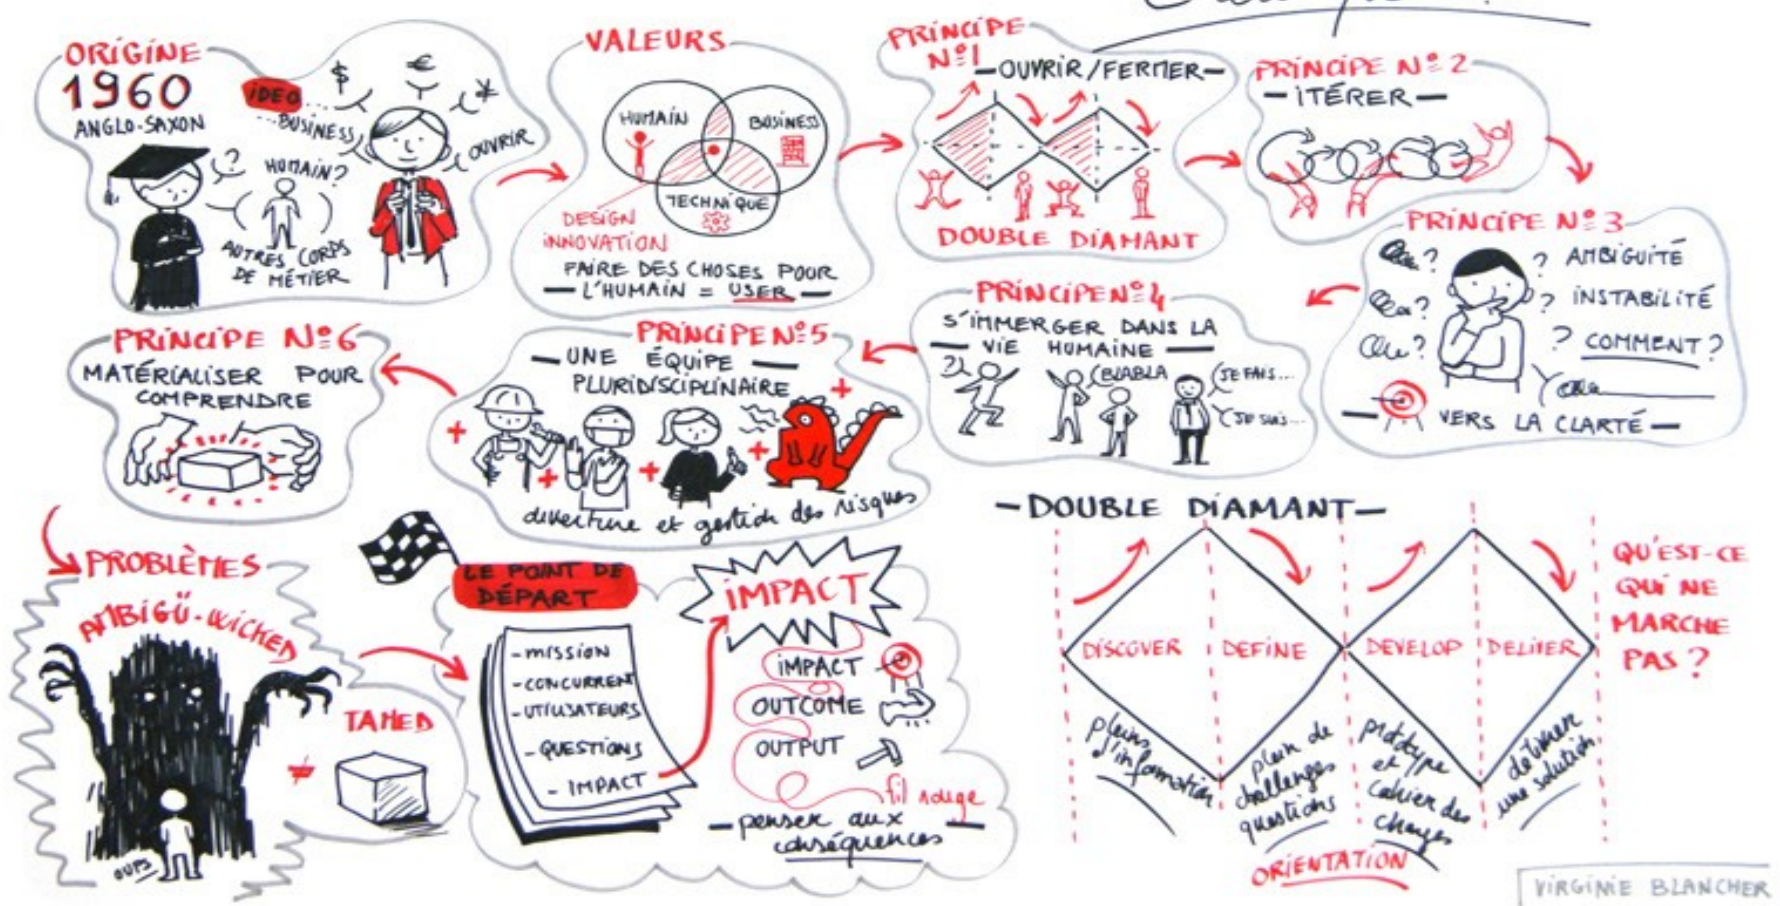 ORIGINE
1960
ANGLO-SAXON
IDEO
BUSINESS
$
€
¥
OUVRIR
?
HUMAIN?
AUTRES CORPS
DE MÉTIER
VALEURS
HUMAIN
BUSINESS
TECHNIQUE
DESIGN
INNOVATION
FAIRE DES CHOSES POUR
— L'HUMAIN = USER —
PRINCIPE
N°1
— OUVRIR/FERMER —
DOUBLE DIAMANT
PRINCIPE N°2
— ITÉRER —
PRINCIPE N°3
? AMBIGUITÉ
? INSTABILITÉ
? COMMENT?
— VERS LA CLARTÉ —
PRINCIPE N°4
S'IMMERGER DANS LA
— VIE HUMAINE —
?
BLABLA
JE FAIS...
JE SUIS...
PRINCIPE N°5
— UNE ÉQUIPE —
PLURIDISCIPLINAIRE
+
+
+
+
+
ouverture et gestion des risques
PRINCIPE N°6
MATÉRIALISER POUR
COMPRENDRE
PROBLÈMES
AMBIGÜ-WICKED
OUPS
≠
TAMED
LE POINT DE
DÉPART
- MISSION
- CONCURRENT
- UTILISATEURS
- QUESTIONS
- IMPACT
IMPACT
IMPACT
OUTCOME
OUTPUT
fil rouge
— penser aux —
conséquences
— DOUBLE DIAMANT —
DISCOVER
DEFINE
DEVELOP
DELIVER
pleins
d'information
plein de
challenges
questions
prototype
et
cahier des
charges
délivrer
une solution
ORIENTATION
QU'EST-CE
QUI NE
MARCHE
PAS?
VIRGINIE BLANCHER